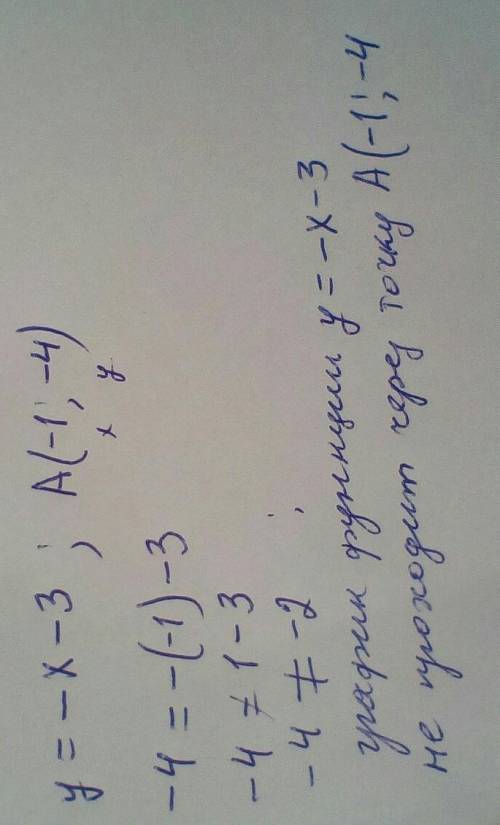 y = -x - 3 ; A(-1; -4)
x y
-4 = -(-1) - 3
-4 ≠ 1 - 3
-4 ≠ -2 ;
график функции y = -x - 3
не проходит через точку A(-1; -4